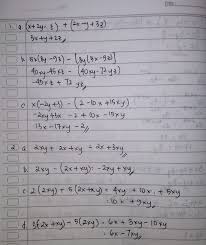 1. a (x+2y-z) + (2x-y+3z)
3x+y+2z
b. 5x(8y-9z) - [8y(5x-9z)]
40xy-45xz - (40xy-72yz)
-45xz + 72yz
c. x(-2y+3) - (2-10x+15xy)
-2xy+3x -2+10x-15xy
13x-17xy-2
2. a. 2xy + 2x + xy = 2x+3xy
b. 2xy - (2x+xy) = -2x+xy
c. 2(2xy) + 5(2x+xy) = 4xy + 10x + 5xy
10x + 9xy
d. 3(2x+xy) - 5(2xy) = 6x + 3xy - 10xy
6x - 7xy